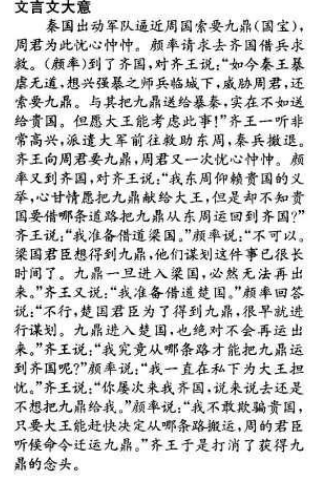 文言文大意
秦国出动军队逼近周国索要九鼎(国宝),
周君为此忧心忡忡。颜率请求去齐国借兵求
救。(颜率)到了齐国,对齐王说:“如今秦王暴
虐无道,想兴强暴之师兵临城下,威胁周君,还
索要九鼎。与其把九鼎送给暴秦,实在不如送
给贵国。但愿大王能考虑此事!”齐王一听非
常高兴,派遣大军前往救助东周,秦兵撤退。
齐王向周君要九鼎,周君又一次忧心忡忡。颜
率又到齐国,对齐王说:“我东周仰赖贵国的义
举,心甘情愿把九鼎献给大王,但是却不知贵
国要借哪条道路把九鼎从东周运回到齐国?”
齐王说:“我准备借道梁国。”颜率说:“不可以。
梁国君臣想得到九鼎,他们谋划这件事已很长
时间了。九鼎一旦进入梁国,必然无法再出
来。”齐王又说:“我准备借道楚国。”颜率回答
说:“不行,楚国君臣为了得到九鼎,很早就进
行谋划。九鼎进入楚国,也绝对不会再运出
来。”齐王说:“我究竟从哪条路才能把九鼎运
到齐国呢?”颜率说:“我一直在私下为大王担
忧。”齐王说:“你屡次来我齐国,说来说去还是
不想把九鼎给我。”颜率说:“我不敢欺骗贵国,
只要大王能赶快决定从哪条路搬运,周的君臣
听候命令迁运九鼎。”齐王于是打消了获得九
鼎的念头。